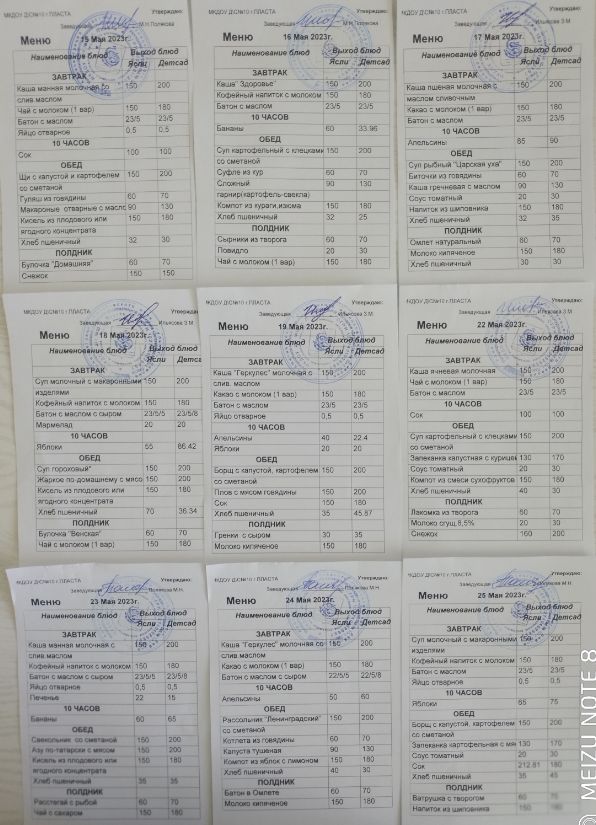 МКДОУ Д/С№10 г.ПЛАСТА Утверждаю:
Заведующая М.Н.Полякова
Меню 15 Мая 2023г.
Наименование блюд Выход блюд
Ясли Детсад
ЗАВТРАК
Каша манная молочная со 150 200
слив.маслом
Чай с молоком (1 вар) 150 180
Батон с маслом 23/5 23/5
Яйцо отварное 0,5 0,5
10 ЧАСОВ
Сок 100 100
ОБЕД
Щи с капустой и картофелем 150 200
со сметаной
Гуляш из говядины 60 70
Макароные отварные с масло 90 130
Кисель из плодового или 150 180
ягодного концентрата
Хлеб пшеничный 32 30
ПОЛДНИК
Булочка "Домашняя" 60 70
Снежок 150 150
МКДОУ Д/С№10 г.ПЛАСТА Утверждаю:
Заведующая М.Н.Полякова
Меню 16 Мая 2023г.
Наименование блюд Выход блюд
Ясли Детсад
ЗАВТРАК
Каша" Здоровье" 150 200
Кофейный напиток с молоком 150 180
Батон с маслом 23/5 23/5
10 ЧАСОВ
Бананы 60 33.96
ОБЕД
Суп картофельный с клецками 150 200
со сметаной
Суфле из кур 60 70
Сложный 90 130
гарнир(картофель-свекла)
Компот из кураги,изюма 150 180
Хлеб пшеничный 32 25
ПОЛДНИК
Сырники из творога 60 70
Повидло 20 30
Чай с молоком (1 вар) 150 180
МКДОУ Д/С№10 г.ПЛАСТА Утверждаю:
Заведующая Ильясова З.М
Меню 17 Мая 2023г.
Наименование блюд Выход блюд
Ясли Детсад
ЗАВТРАК
Каша пшеная молочная с 150 200
маслом сливочным
Какао с молоком (1 вар) 150 180
Батон с маслом 23/5 23/5
10 ЧАСОВ
Апельсины 85 90
ОБЕД
Суп рыбный "Царская уха" 150 200
Биточки из говядины 60 70
Каша гречневая с маслом 90 130
Соус томатный 20 30
Напиток из шиповника 150 180
Хлеб пшеничный 32 35
ПОЛДНИК
Омлет натуральный 60 70
Молоко кипяченое 150 180
Хлеб пшеничный 30 30
МКДОУ Д/С№10 г.ПЛАСТА Утверждаю:
Заведующая Ильясова З.М
Меню 18 Мая 2023г.
Наименование блюд Выход блюд
Ясли Детсад
ЗАВТРАК
Суп молочный с макаронными 150 200
изделями
Кофейный напиток с молоком 150 180
Батон с маслом с сыром 23/5/5 23/5/8
Мармелад 20 20
10 ЧАСОВ
Яблоки 55 86.42
ОБЕД
Суп гороховый" 150 200
Жаркое по-домашнему с мясо 150 200
Кисель из плодового или 150 180
ягодного концентрата
Хлеб пшеничный 70 36.34
ПОЛДНИК
Булочка "Венская" 60 70
Чай с молоком (1 вар) 150 180
МКДОУ Д/С№10 г.ПЛАСТА Утверждаю:
Заведующая Ильясова З.М
Меню 19 Мая 2023г.
Наименование блюд Выход блюд
Ясли Детсад
ЗАВТРАК
Каша "Геркулес" молочная с 150 200
слив. маслом
Какао с молоком (1 вар) 150 180
Батон с маслом 23/5 23/5
Яйцо отварное 0,5 0,5
10 ЧАСОВ
Апельсины 40 22.4
Яблоки 20 20
ОБЕД
Борщ с капустой, картофелем 150 200
со сметаной
Плов с мясом говядины 150 200
Сок 150 180
Хлеб пшеничный 35 45.87
ПОЛДНИК
Гренки с сыром 30 35
Молоко кипяченое 150 180
МКДОУ Д/С№10 г.ПЛАСТА Утверждаю:
Заведующая Ильясова З.М
Меню 22 Мая 2023г.
Наименование блюд Выход блюд
Ясли Детсад
ЗАВТРАК
Каша ячневая молочная 150 200
Чай с молоком (1 вар) 150 180
Батон с маслом 23/5 23/5
10 ЧАСОВ
Сок 100 100
ОБЕД
Суп картофельный с клецками 150 200
со сметаной
Запеканка капустная с курицей 130 170
Соус томатный 20 30
Компот из смеси сухофруктов 150 180
Хлеб пшеничный 40 30
ПОЛДНИК
Лакомка из творога 60 70
Молоко сгущ.8,5% 20 30
Снежок 160 200
МКДОУ Д/С№10 г.ПЛАСТА Утверждаю:
Заведующая Полякова М.Н.
Меню 23 Мая 2023г.
Наименование блюд Выход блюд
Ясли Детсад
ЗАВТРАК
Каша манная молочная с 150 200
слив.маслом
Кофейный напиток с молоком 150 180
Батон с маслом с сыром 23/5/5 23/5/8
Яйцо отварное 0,5 0,5
Печенье 22 15
10 ЧАСОВ
Бананы 60 65
ОБЕД
Свекольник со сметаной 150 200
Азу по-татарски с мясом 150 200
Кисель из плодового или 150 180
ягодного концентрата
Хлеб пшеничный 35 35
ПОЛДНИК
Расстегай с рыбой 60 70
Чай с сахаром 150 180
МКДОУ Д/С№10 г.ПЛАСТА Утверждаю:
Заведующая Полякова М.Н.
Меню 24 Мая 2023г.
Наименование блюд Выход блюд
Ясли Детсад
ЗАВТРАК
Каша "Геркулес" молочная со 150 200
слив.маслом
Какао с молоком (1 вар) 150 180
Батон с маслом с сыром 22/5/5 22/5/8
10 ЧАСОВ
Апельсины 50 60
ОБЕД
Рассольник "Ленинградский" 150 200
со сметаной
Котлета из говядины 60 70
Капуста тушеная 90 130
Компот из яблок с лимоном 150 180
Хлеб пшеничный 40 30
ПОЛДНИК
Батон в Омлете 60 70
Молоко кипяченое 150 180
МКДОУ Д/С№10 г.ПЛАСТА Утверждаю:
Заведующая Полякова М.Н.
Меню 25 Мая 2023г.
Наименование блюд Выход блюд
Ясли Детсад
ЗАВТРАК
Суп молочный с макаронными 150 200
изделями
Кофейный напиток с молоком 150 180
Батон с маслом 23/5 23/5
Яйцо отварное 0,5 0,5
10 ЧАСОВ
Яблоки 65 75
ОБЕД
Борщ с капустой, картофелем 150 200
со сметаной
Запеканка картофельная с мя 130 170
Соус томатный 20 30
Сок 212.81 180
Хлеб пшеничный 35 45
ПОЛДНИК
Ватрушка с творогом 60 75
Напиток из шиповника 150 180
MEIZU NOTE 8